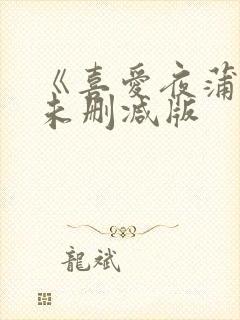 《喜爱夜蒲
未删减版
龍斌